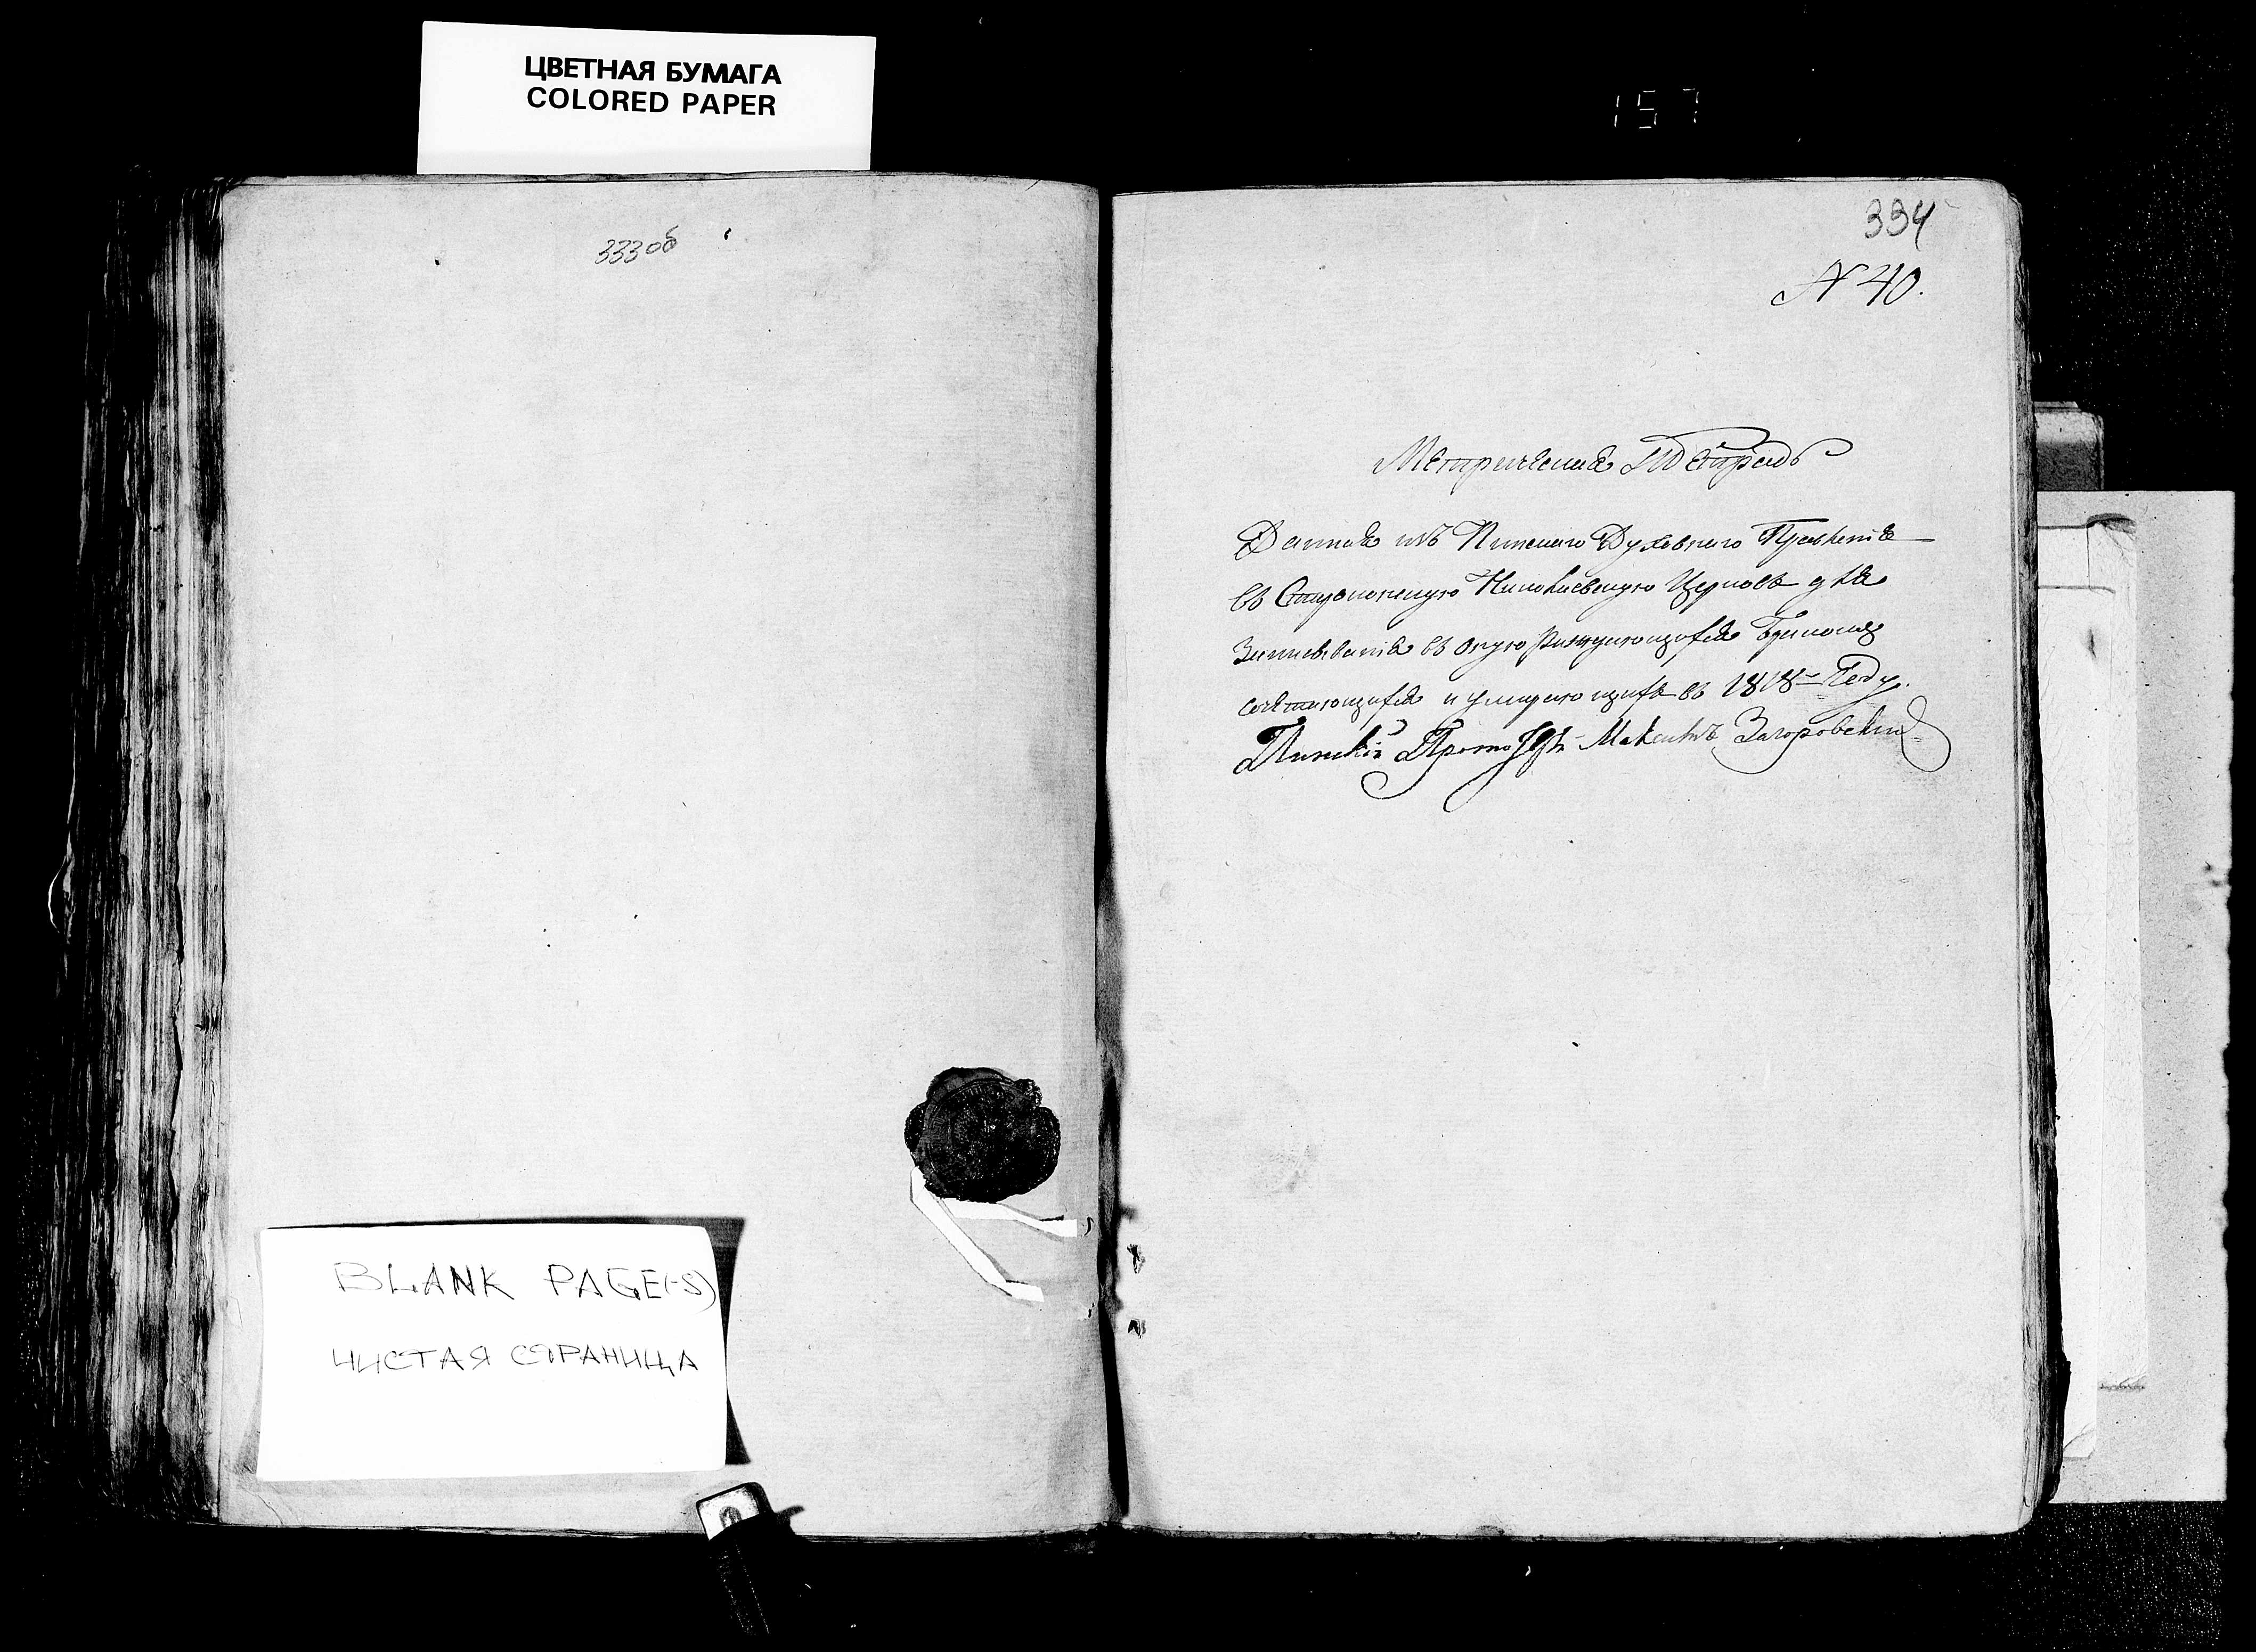 ЦВЕТНАЯ БУМАГА
COLORED PAPER
157
333об
334
N 40.
Метрическая Тетрадь
Данная изъ Пинскаго Духовнаго Правленія
въ Николаевскую Церковь для
Записыванія въ оную раждающихся бракомъ
сочетающихся и умирающихъ въ 1818 Году.
Пинскій Прото Максимъ Загоровскій
BLANK PAGE(-S)
ЧИСТАЯ СТРАНИЦА